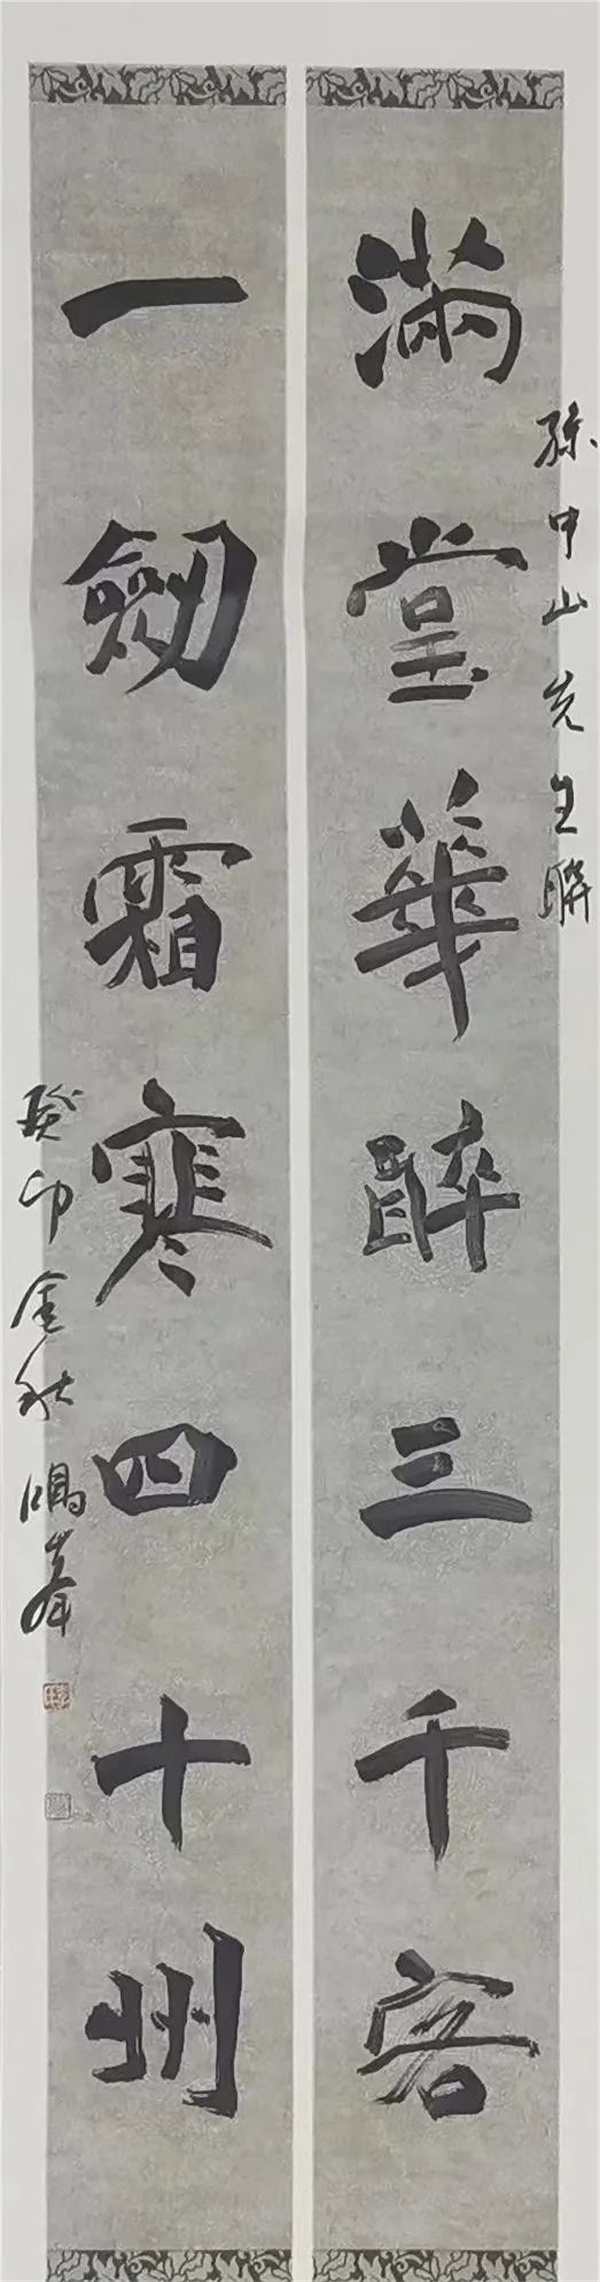 孫中山先生聯
滿堂華醉三千客
一劔霜寒四十州
癸卯金秋鴻峯